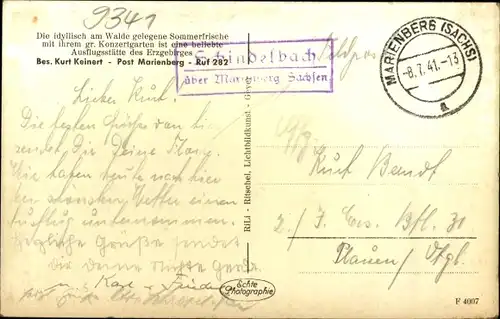 9341
Die idyllisch am Walde gelegene Sommerfrische
mit ihrem gr. Konzertgarten ist eine beliebte
Ausflugsstätte des Erzgebirges
Bes. Kurt Keinert - Post Marienberg - Ruf 282
Schindelbach
über Marienberg Sachsen
Feldpost
MARIENBERG (SACHS)
-8.7.41.-13
a
Lieber Kurt.
Die besten Grüße von hier
sendet Dir Deine
Wir haben heute nach hier
bei schönsten Wetter einen
Ausflug unternommen.
Herzliche Grüße sendet
Dir deine Gerda
u. Karl
RILI - Ritschel, Lichtbildkunst
Kurt Bendt
2./ J. Ers. Btl. 31
Plauen / Vgtl.
Echte
Photographie
F 4007